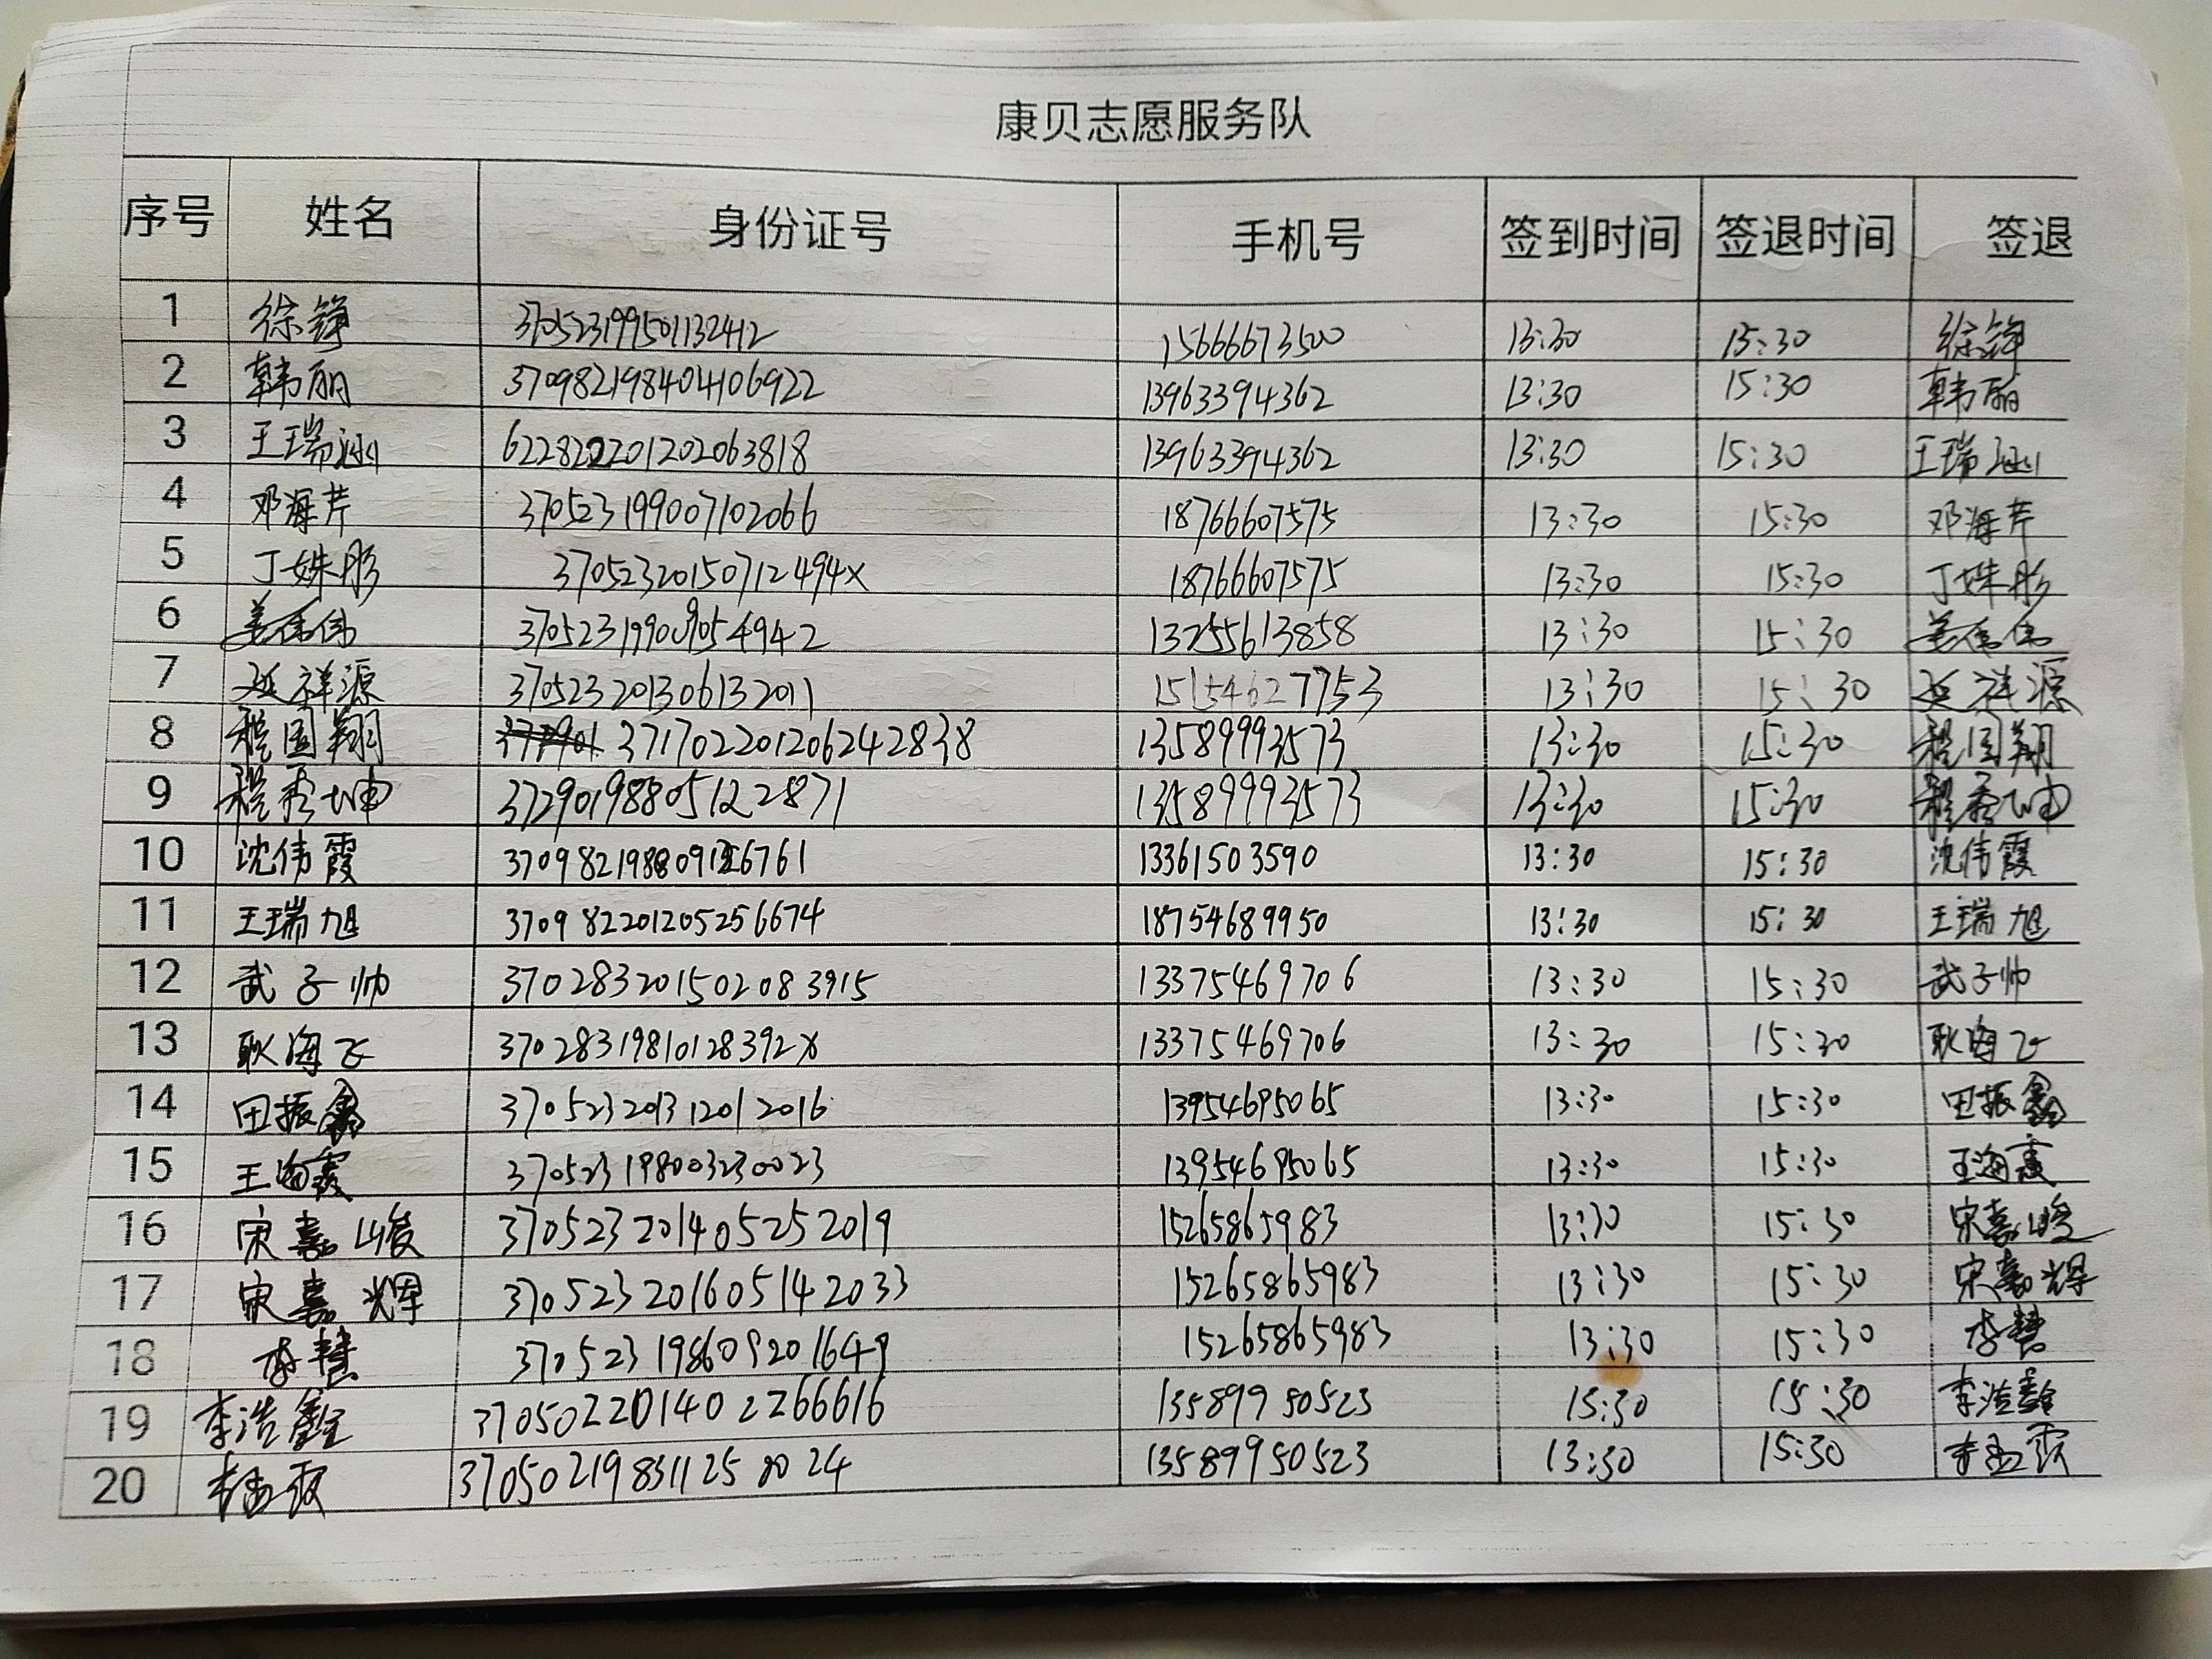 康贝志愿服务队
序号 姓名 身份证号 手机号 签到时间 签退时间 签退
1 徐铮 370523199501132412 15666673500 13:30 15:30 徐铮
2 韩丽 370982198404106922 13963394362 13:30 15:30 韩丽
3 王瑞涵 622822201202063818 13963394362 13:30 15:30 王瑞涵
4 邓海芹 370523199007102066 18766607575 13:30 15:30 邓海芹
5 丁姝彤 37052320150712494x 18766607575 13:30 15:30 丁姝彤
6 姜伟伟 370523199009054942 13255613858 13:30 15:30 姜伟伟
7 延祥源 370523201306132011 15154627753 13:30 15:30 延祥源
8 程国翔 371702201206242838 13589993573 13:30 15:30 程国翔
9 程秀坤 37290198805122871 13589993573 13:30 15:30 程秀坤
10 沈伟霞 13361503590 13:30 15:30 沈伟霞
11 王瑞旭 370982201205256674 18754689950 13:30 15:30 王瑞旭
12 武子帅 370283201502083915 13375469706 13:30 15:30 武子帅
13 耿海飞 37028319810128392x 13375469706 13:30 15:30 耿海飞
14 田振鑫 370523201312012016 13954695065 13:30 15:30 田振鑫
15 王海霞 370523198003230023 13954695065 13:30 15:30 王海霞
16 宋嘉峻 370523201405252019 15265865983 13:30 15:30 宋嘉峻
17 宋嘉辉 370523201605142033 15265865983 13:30 15:30 宋嘉辉
18 李慧 370523198609201649 15265865983 13:30 15:30 李慧
19 李浩鑫 370502201402266616 13589950523 15:30 15:30 李浩鑫
20 13589950523 13:30 15:30